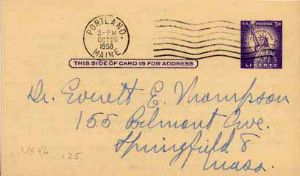 PORTLAND
3-PM
1958
MAINE
U.S. POSTAGE
LIBERTY
THIS SIDE OF CARD IS FOR ADDRESS
Dr. Everett E. Thompson
155 Belmont Ave.
Springfield 8
Mass.
UX46 .25